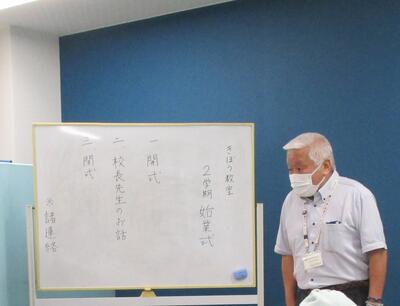 きぼう教室
２学期 始業式
一 開式
二 校長先生のお話
三 閉式
※諸連絡